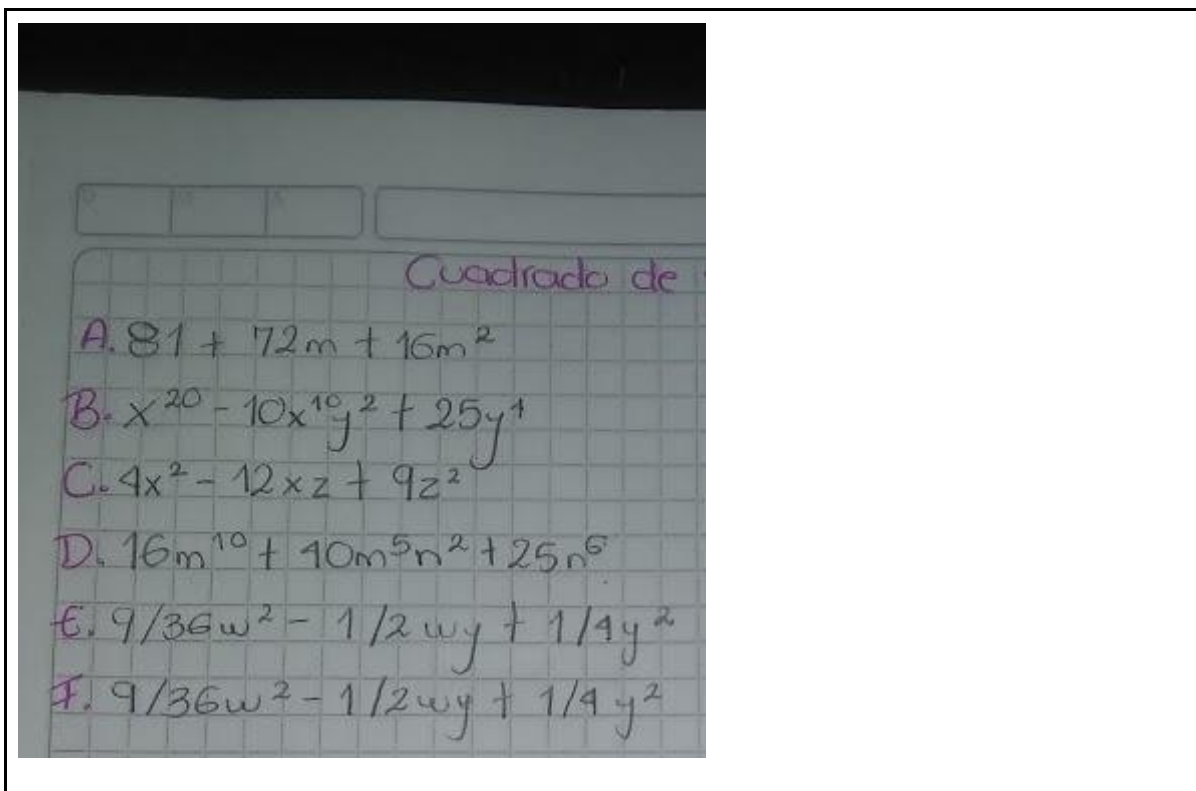 Cuadrado de
A. 81 + 72m + 16m²
B. x²⁰ - 10x¹⁰y² + 25y⁴
C. 4x² - 12xz + 9z²
D. 16m¹⁰ + 40m⁵n² + 25n⁶
E. 9/36w² - 1/2wy + 1/4y²
F. 9/36w² - 1/2wy + 1/4y²